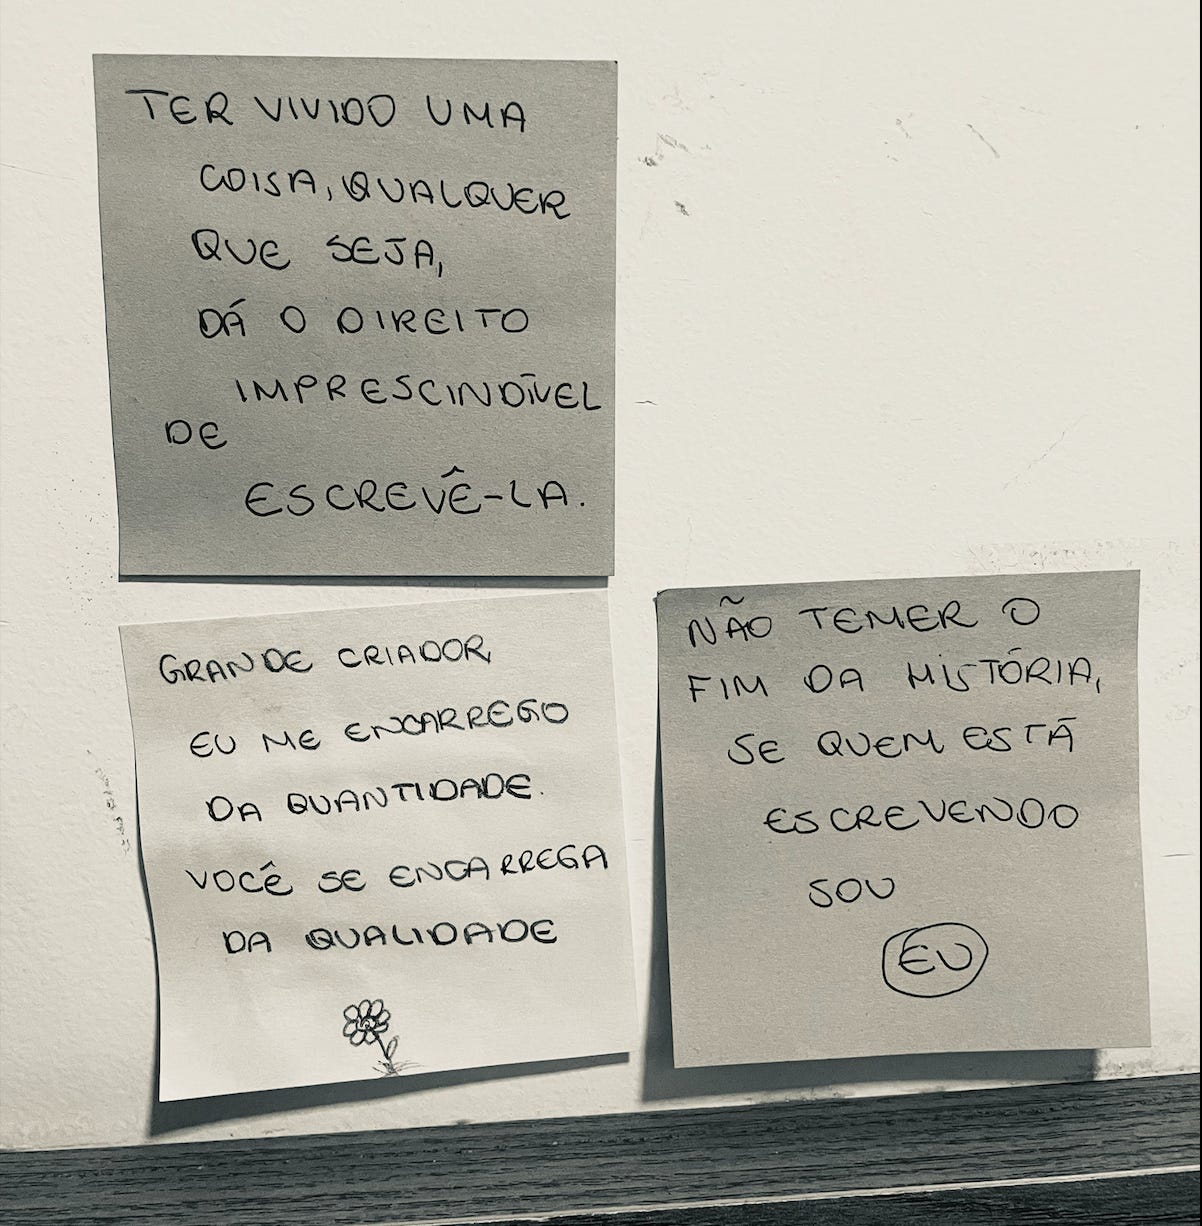 TER VIVIDO UMA
COISA, QUALQUER
QUE SEJA,
DÁ O DIREITO
IMPRESCINDÍVEL
DE
ESCREVÊ-LA.
GRANDE CRIADOR,
EU ME ENCARREGO
DA QUANTIDADE.
VOCÊ SE ENCARREGA
DA QUALIDADE
NÃO TEMER O
FIM DA HISTÓRIA,
SE QUEM ESTÁ
ESCREVENDO
SOU
EU